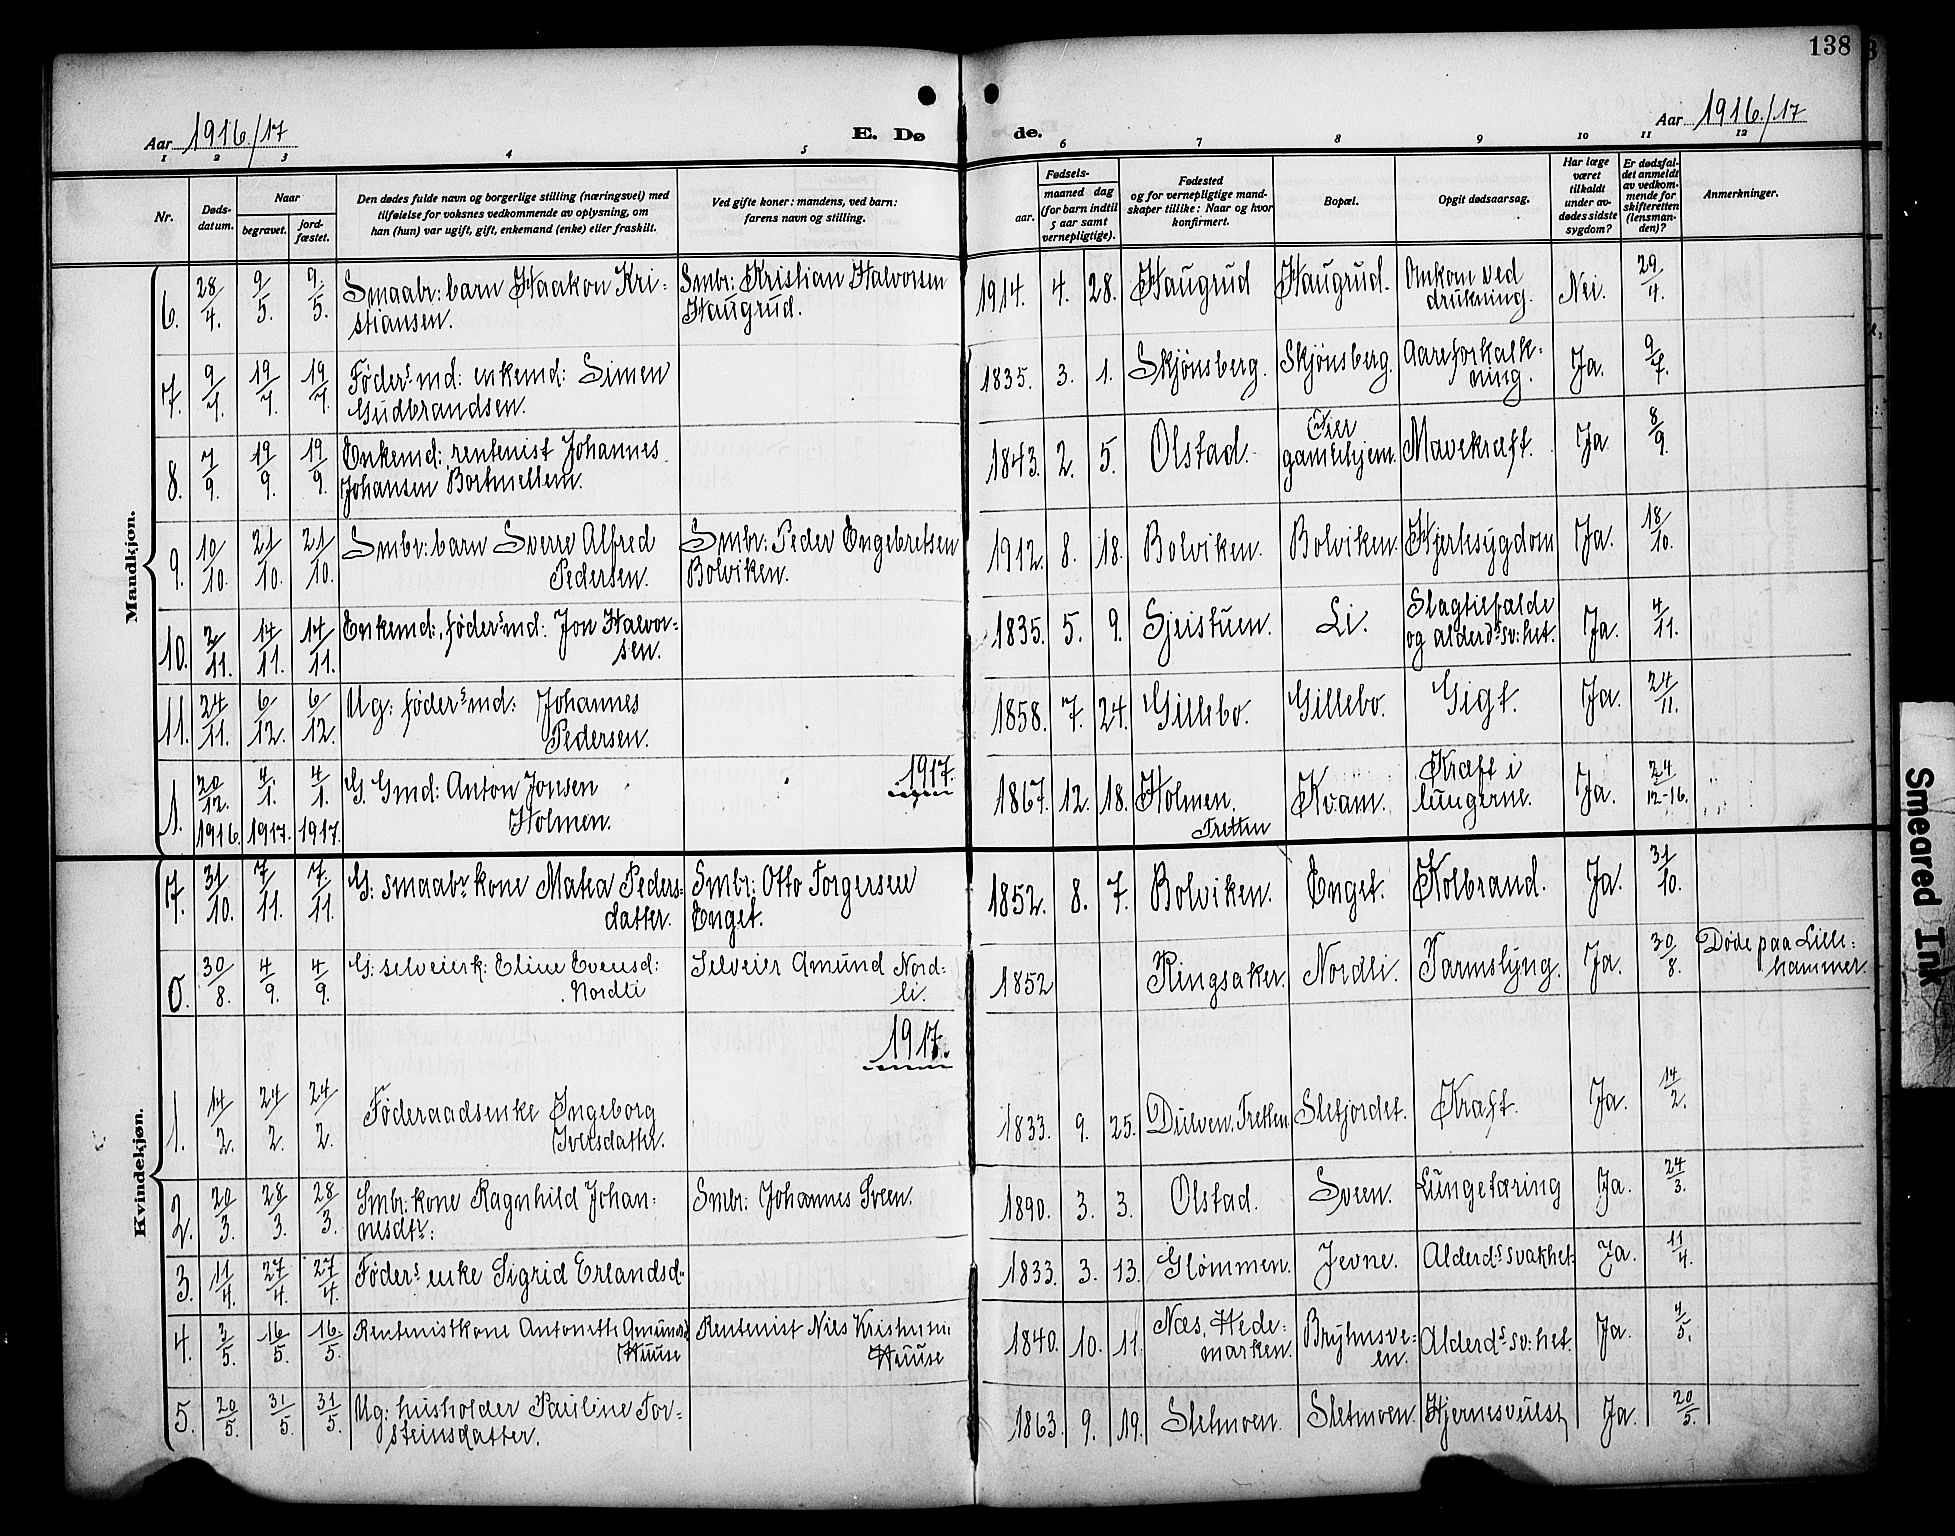 138
Aar 1916/17
E. Dø
de.
Aar 1916/17
1 2 3 4 5 6 7 8 9 10 11 12
Nr.
Døds-
datum.
Naar
begravet.
jord-
fæstet.
Den dødes fulde navn og borgerlige stilling (næringsvei) med
tilføielse for voksnes vedkommende av oplysning, om
han (hun) var ugift, gift, enkemand (enke) eller fraskilt.
Ved gifte koner: mandens, ved barn:
farens navn og stilling.
Fødsels-
aar.
maaned dag
(for barn indtil
5 aar samt
vernepligtige).
Fødested
og for vernepligtige mand-
skaper tillike: Naar og hvor
konfirmert.
Bopæl.
Opgit dødsaarsag.
Har læge
været
tilkaldt
under av-
dødes sidste
sygdom?
Er dødsfal-
det anmeldt
av vedkom-
mende for
skifteretten
(lensman-
den)?
Anmerkninger.
Mandkjøn.
6. 28/4. 9/5. 9/5. Smaabr: barn Haakon Kri-
stiansen.
Smbr: Kristian Halvorsen
Haugrud.
1914. 4. 28. Haugrud Haugrud. Omkom ved
drukning. Nei. 29/4.
7. 9/7. 19/7. 19/7. Föders md: enkemd: Simen
Gudbrandsen.
1835. 3. 1. Skjönsberg. Skjönsberg. Aareforkalk-
ning. Ja. 9/7.
8. 7/9. 19/9. 19/9. Enkemd: rentenist Johannes
Johansen Bortmellem.
1843. 2. 5. Olstad. Öier
gamlehjem. Mavekræft. Ja 8/9.
9. 10/10. 21/10. 21/10. Smbr: barn Sverre Alfred
Pedersen.
Smbr: Peder Engebretsen
Bolviken.
1912. 8. 18. Bolviken. Bolviken. Hjertesygdom Ja. 18/10.
10. 2/11. 14/11. 14/11. Enkemd:, föders md: Jon Halvor-
sen.
1835. 5. 9. Sjeistuen. Li. Slagtilfælde
og alderds sv:het. Ja. 4/11.
11. 24/11. 6/12. 6/12. Ug: föders md: Johannes
Pedersen.
1858. 7. 24. Gillebo. Gillebo. Gigt. Ja. 24/11.
1917.
1. 20/12. 1916. 4/1. 1917. 4/1. 1917. G. Gmd: Anton Jonsen
Holmen.
1867. 12. 18. Holmen,
Tretten Kvam. Kræft i
lungerne. Ja. 24/12-16.
Kvindekjøn.
17. 31/10. 7/11. 7/11. G: smaabr kone Matea Peders-
datter.
Smbr: Otto Torgersen
Enget.
1852. 8. 7. Bolviken. Enget. Kolbrand. Ja. 31/10.
0. 30/8. 4/9. 4/9. G: selveierk: Eline Evensd:
Nordli
Selveier Amund Nord-
li.
1852 Ringsaker. Nordli. Tarmslyng. Ja. 30/8. Døde paa Lille-
hammer.
1917.
1. 14/2. 24/2. 24/2. Föderaadsenke Ingeborg
Iversdatter.
1833. 9. 25. Dulven, Tretten Sletjordet. Kræft. Ja. 14/2.
2. 20/3. 28/3. 28/3. Smbr: kone Ragnhild Johan-
nesdtr:
Smbr: Johannes Sveen.
1890. 3. 3. Olstad. Sveen. Lungetæring Ja. 24/3.
3. 11/4. 27/4. 27/4. Föders enke Sigrid Erlandsd:
1833. 3. 13. Glömmen. Jevne. Alderds svakhet. Ja. 11/4.
4. 3/5. 16/5. 16/5. Rentenistkone Antonette Amundsd
Huuse
Rentenist Nils Kristensen
Huuse
1840. 10. 11. Næs, Hede-
marken. Bryhnsve-
en. Alderds sv:het. Ja. 4/5.
5. 20/5. 31/5. 31/5. Ug: husholder Pauline Tor-
steinsdatter.
1863. 9. 19. Sletmoen. Sletmoen. Hjernesvulst Ja. 20/5.
Smeared Ink